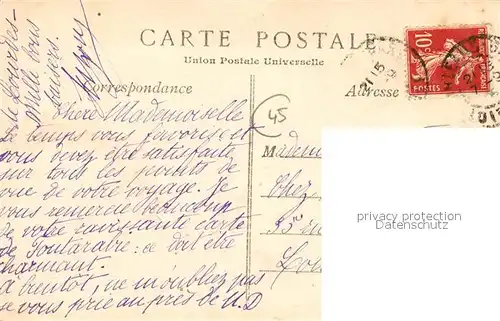 de Lourdes
Mille bons
baisers.
CARTE POSTALE
Union Postale Universelle
Correspondance
Adresse
10c
POSTES
21 5
45
Chère Mademoiselle
Le temps vous favorise et
vous devez être satisfaite
sur tous les points de
vue de votre voyage. Je
vous remercie beaucoup
de votre ravissante carte
de Fontarabie: ce doit être
charmant.
à bientôt, ne m'oubliez pas
je vous prie auprès de N.D
Madem
Chez
35 ru
Lou
privacy protection
Datenschutz